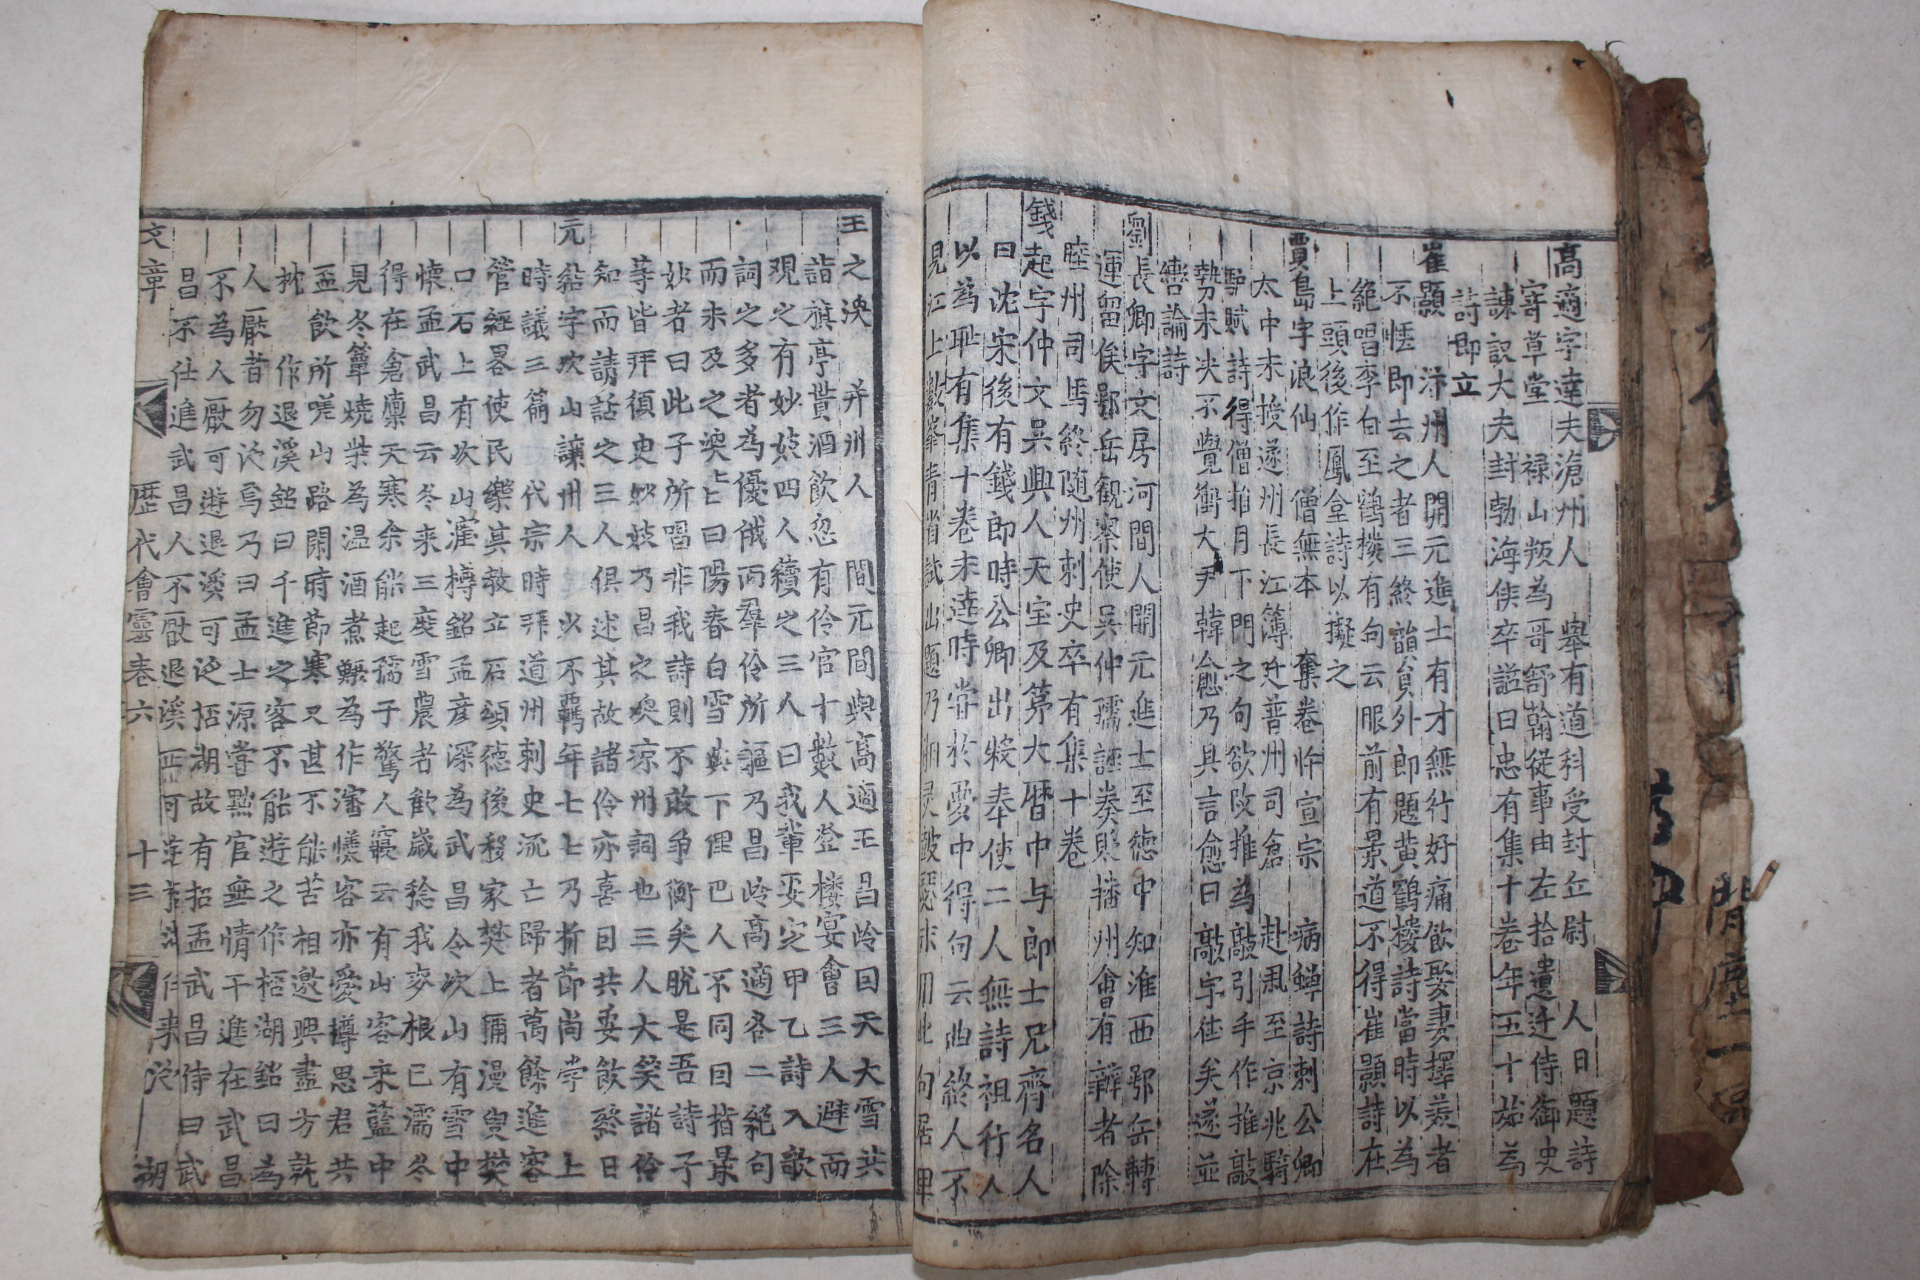 高適字達夫滄州人 舉有道科受封丘尉 人日題詩
寄草堂 祿山叛為哥舒翰従事由左拾遺迁侍御史
諫議大夫封勃海侯卒諡曰忠有集十卷年五十始為
詩即立
崔顥 汴州人開元進士有才無行好痛飲娶妻擇羙者
不恆即去之者三終 員外郎題黃鶴樓詩當時以為
絶唱李白至鶴樓有句云眼前有景道不得崔顥詩在
上頭後作鳳坮詩以擬之
賈島字浪仙 僧無本 奪卷忤宣宗 病蟬詩刺公卿
太中末授遂州長江簿迁普州司倉 赴京至京兆騎
驢賦詩得僧推月下門之句欲改推為敲引手作推敲
勢未决不覺衝大尹韓愈乃具言愈曰敲字佳矣遂並
轡論詩
劉長卿字文房河間人開元進士至德中知淮西鄂岳轉
運留俟鄂岳観察使吳仲孺誣奏貶播州會有辨者除
睦州司馬終随州刺史卒有集十卷
錢起字仲文吳興人天宝及第大曆中与郎士兄齊名人
曰沈宋後有錢郎時公卿出將奉使二人無詩祖行人
以為耻有集十卷未達時甞於夢中得句云曲終人不
見江上數峯青省試出題乃湘灵皷瑟末用此句居甲
王之渙 并州人 間元間與高適王昌岭因天大雪共
詣旗亭貰酒飮忽有伶官十數人登樓宴會三人避而
观之有妙妓四人續之三人曰我輩要定甲乙詩入歌
詞之多者為優俄而羣伶所謳乃昌岭高適各二絶句
而未及之渙匕曰陽春白雪 下俚巴人不同因指最
妙者曰此子所唱非我詩則不敢争衡矣脫是吾詩子
等皆拜須㬰妙妓乃昌之渙凉州詞也三人大笑諸伶
知而請話之三人俱述其故諸伶亦喜因共要飮終日
時議三篇 代宗時拜道州刺史流亡歸者萬餘進容
元結字次山讓州人 少不羈年七七乃折節尚學 上
管經畧使民樂其教立石頌德後移家樊上猶漫叟樊
口石上有次山窪樽銘孟彦深為武昌令次山有雪中
懷孟武昌云冬来三度雪農者歡歲稔我麥根已濡冬
得在倉廩天寒余能起孺子驚人寢云有山客来藍中
見冬簞燒柴為温酒煮鱖為作瀋懷客亦愛樽思君共
盃飲所嗟山路閑時節寒又甚不能苦相邀興盡方訖
枕 作退溪銘曰千進之客不能遊之作梧湖銘曰為
人厭者勿泛焉乃曰孟士源甞黙官無情干進在武昌
不為人厭可遊退溪可泛梧湖故有招孟武昌侍曰武
昌不仕進武昌人不厭退溪 来泛 湖
文章 歷代會靈卷六 十三